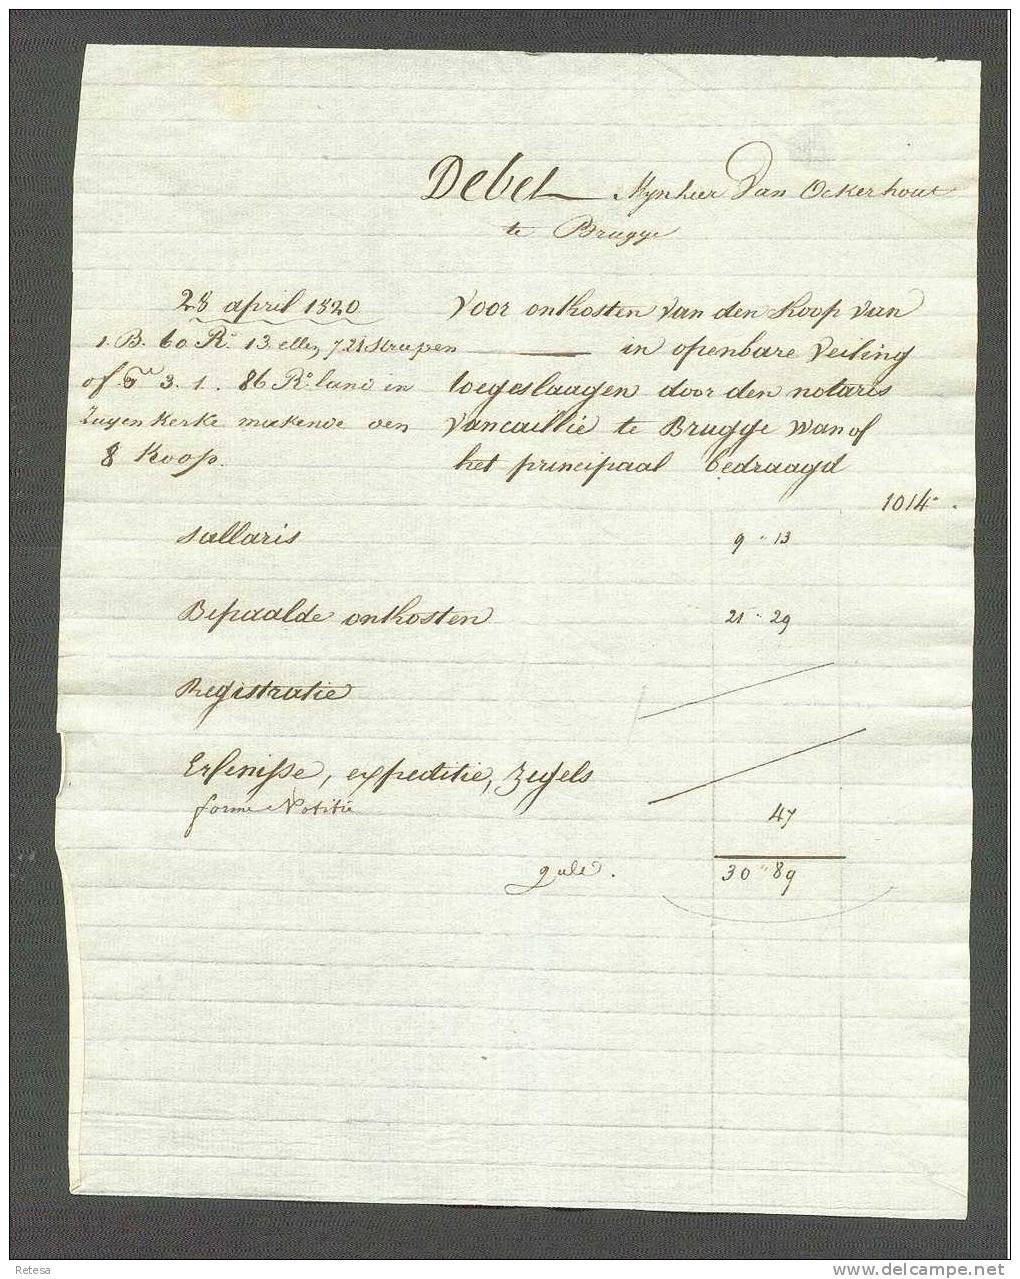 Debet Mynheer Van Ockerhout
te Brugge
28 april 1820
1. B. 60 Rn. 13 ellen
of 3. 1. 86 Rn. land in
Zuyenkerke maekende den
8 Koop.
Voor onkosten van den Koop van
in openbare Veiling
toegeslaagen door den notaris
Vancaillie te Brugge wan of
het principaal bedraagd
1014 - .
Sallaris 9 - 13
Bepaalde onkosten 21 - 29
Registratie
Erfenisse, expeditie, Zegels
forme Notitie 47
30 " 89
Retesa
www.delcampe.net